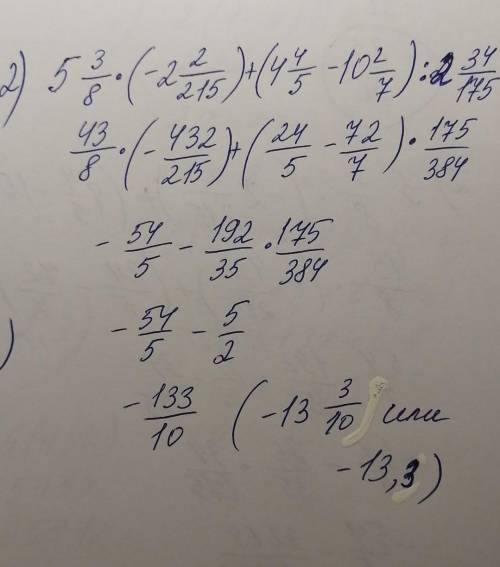 2) 5 3/8 · (-2 2/215) + (4 4/5 - 10 2/7) : 2 34/175
43/8 · (-432/215) + (24/5 - 72/7) · 175/384
- 54/5 - 192/35 · 175/384
- 54/5 - 5/2
- 133/10 (-13 3/10 или
-13,3)
)